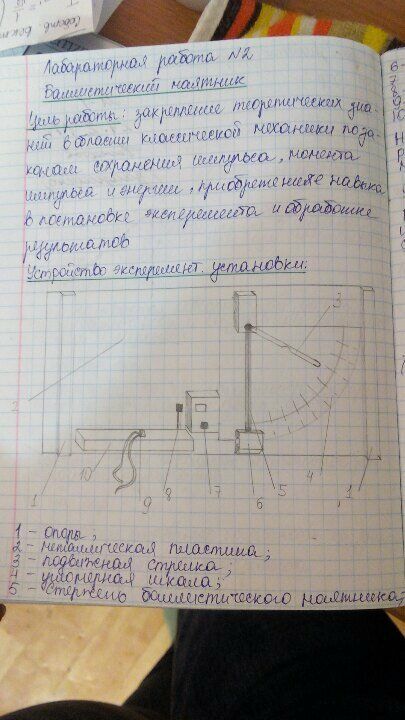 Лабараторная работа №2
Баллистический маятник
Цель работы: закрепление теоретических зна-
ний в области классической механики по за-
конам сохранения импульса, момента
импульса и энергии, приобретение навыка
в постановке эксперемента и обработке
результатов
Устройство эксперемент. установки:
2
3
1
10
9
8
7
6
5
4
1
1 - опоры;
2 - металлическая пластина;
3 - подвижная стрелка;
4 - угломерная шкала;
5 - стержень баллистического маятника;